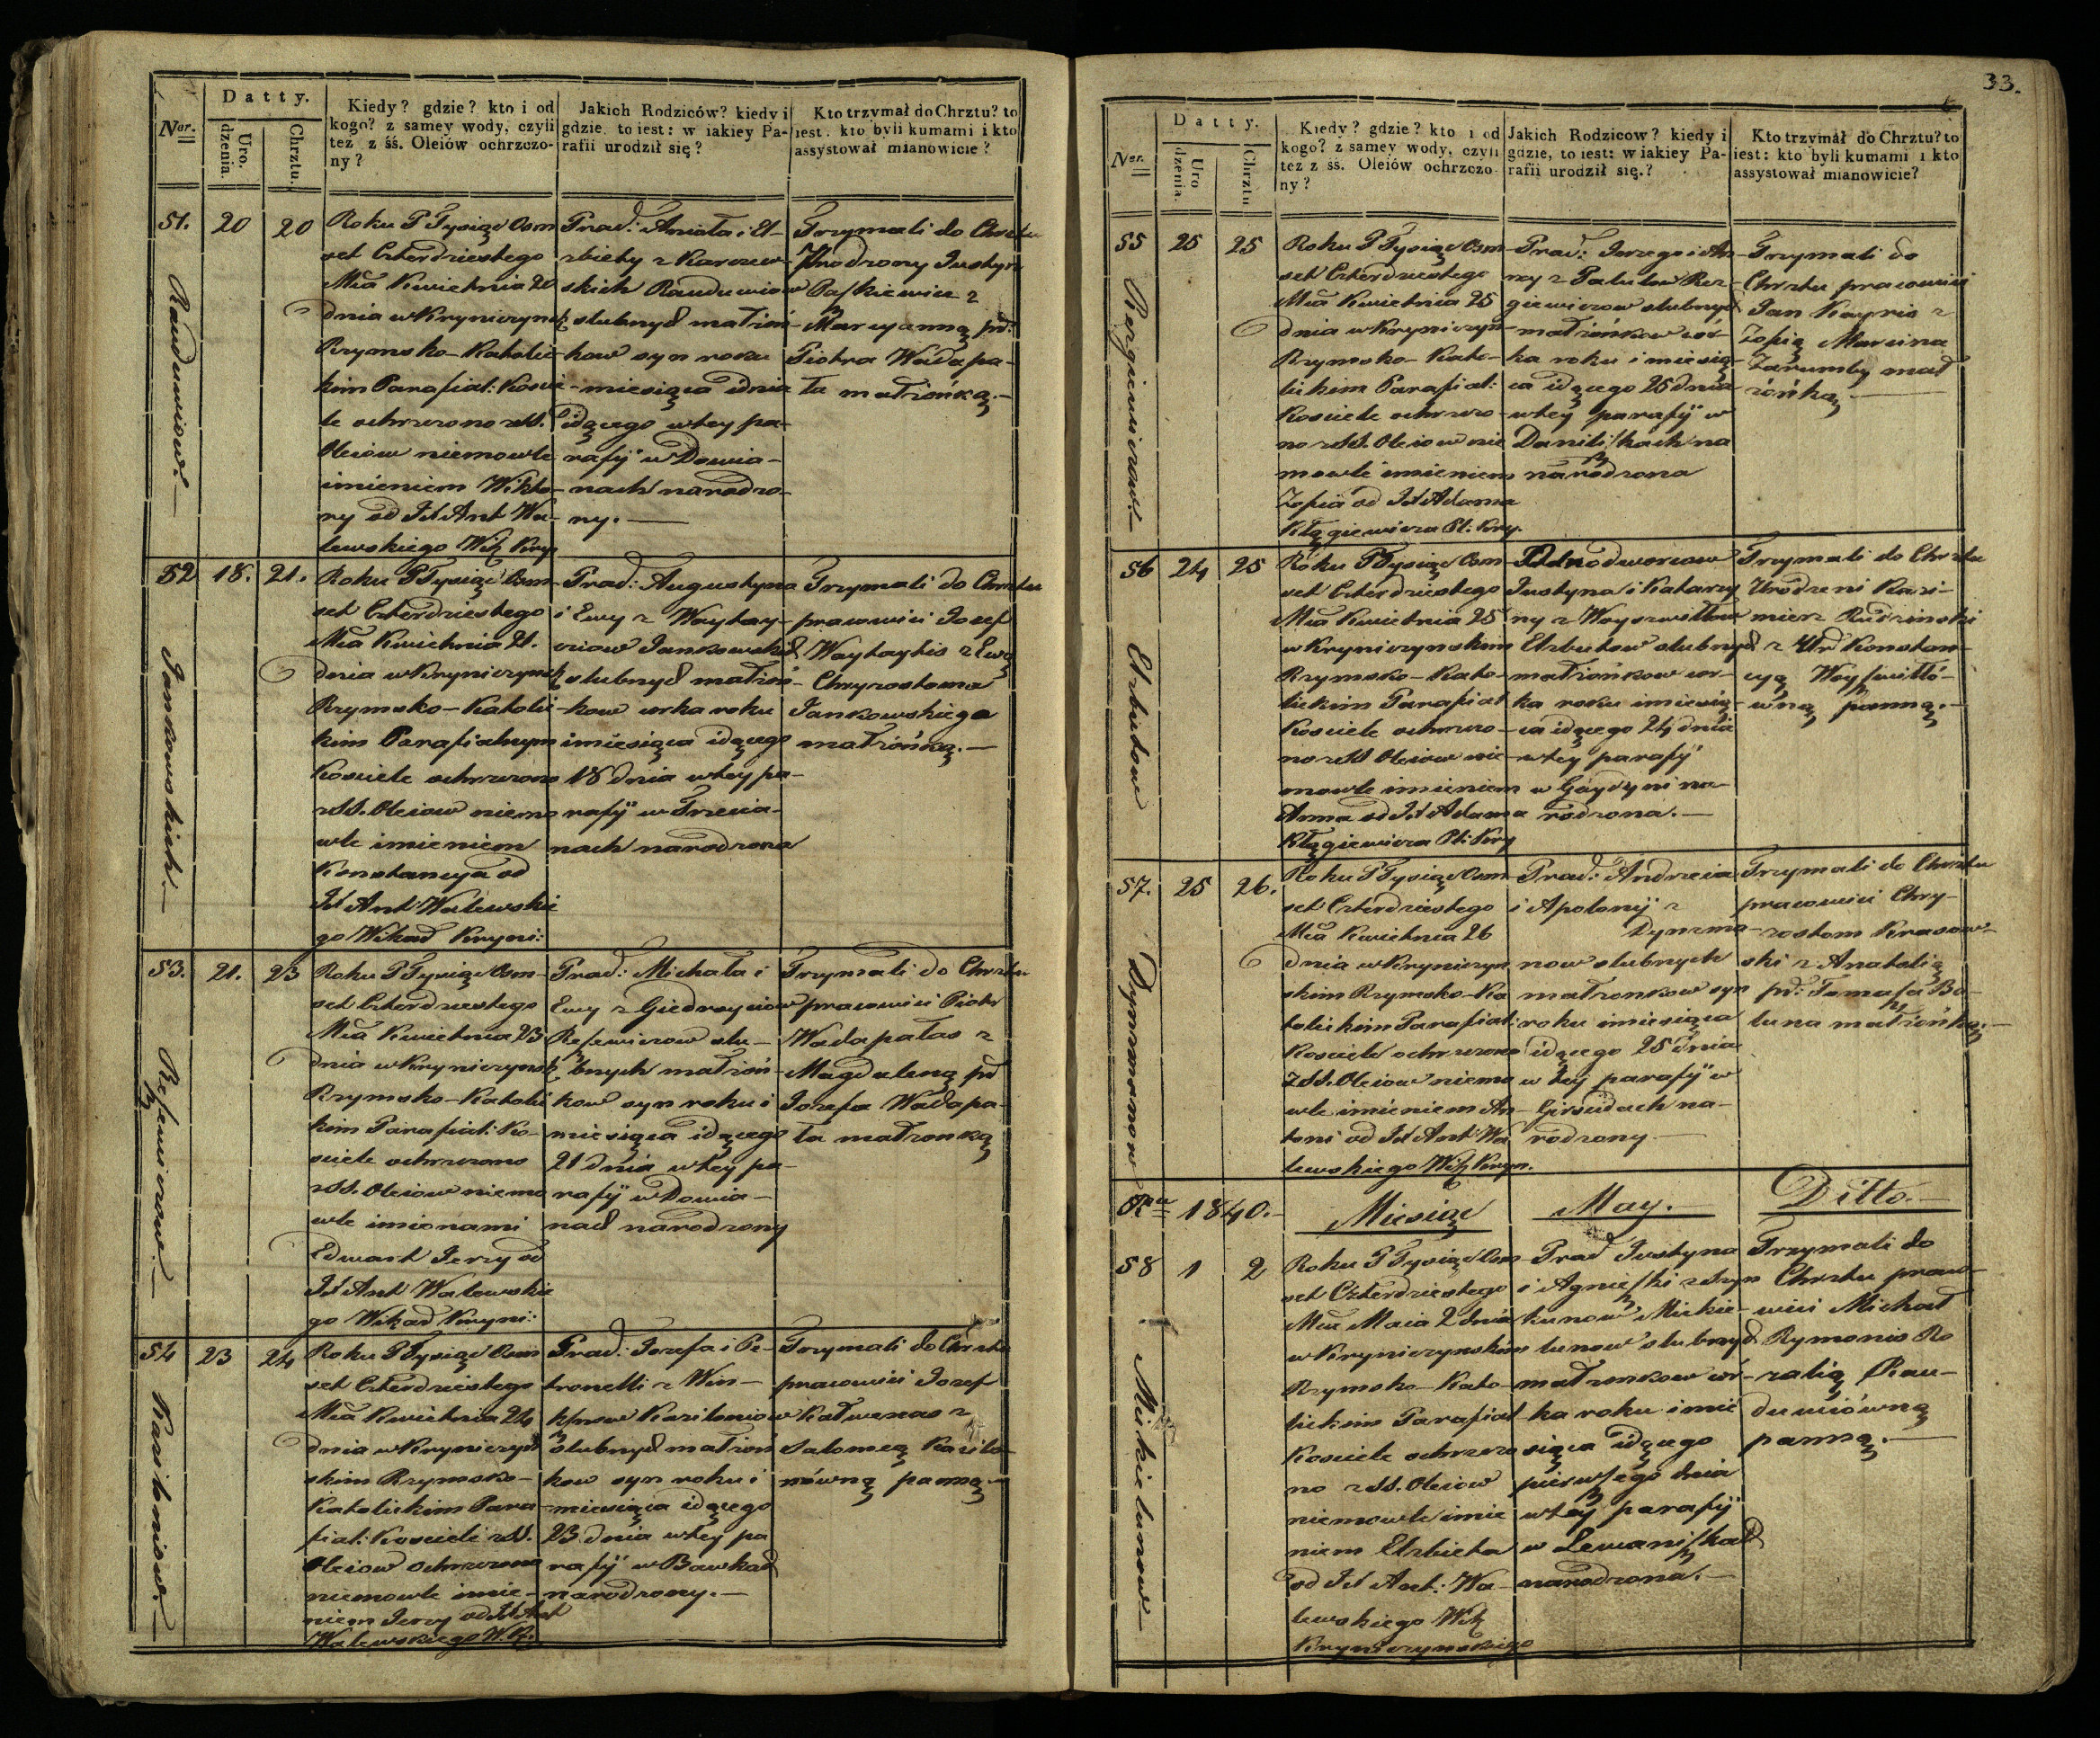 Nar.
Datty.
Uro.
dzenia.
Chrztu.
Kiedy? gdzie? kto i od
kogo? z samey wody, czyli
tez z śś. Oleiów ochrzczo-
ny?
Jakich Rodziców? kiedy i
gdzie, to iest: w iakiey Pa-
rafii urodził się?
Kto trzymał do Chrztu? to
iest. kto byli kumami i kto
assystował mianowicie?
51.
Raudawiow.
20
20
Roku P Tysiąc Osm
set Czterdziestego
Mca Kwietnia 20
dnia w Kryniczynsk
Rzymsko-Katolic
kim Parafial: Kosci
le ochrzczono z SS.
Oleiow niemowle
imieniem Wikto-
ry od Jd Ant Wa-
lewskiego Wik Kry.
Prad: Aniola i El-
zbiety z Karczew-
skich
slubnych małżoń-
kow syn roku
miesiąca i dnia
idącego w tey pa-
rafij w Dowia-
nach narodzo-
ny.
Trzymali do Chrztu
Urodzony Justyn
Paszkiewicz z
Maryanną pd:
Piotra Wadapa-
la małżonką.
52
Jankowskich.
18.
21.
Roku P Tysiąc Osm-
set Czterdziestego
Mca Kwietnia 21.
dnia w Kryniczynsk
Rzymsko-Katolic
kim Parafialnym
Kosciele ochrzczono
z SS. Oleiow niemo
wle imieniem
Konstancya od
Jd Ant Walewskie
go Wikar Kryni:
Prad: Augustyna
i Ewy z Waytay-
ciow Jankowskich
slubnych małżoń-
kow corka roku
i miesiąca idącego
18 dnia w tey pa-
rafij w Trzecia-
nach narodzona
Trzymali do Chrztu
pracowici Jozef
Waytaytis z Ewą
Chryzostoma
Jankowskiego
małżonką.
53.
Reszewiczow.
21.
23
Roku P Tysiąc Osm-
set Czterdziestego
Mca Kwietnia 23
dnia w Krynicznsk
Rzymsko-Katolic
kim Parafial: Ko-
sciele ochrzczono
z SS. Oleiow niemo
wle imionami
Edwart Jerzy od
Jd Ant Walewskie
go Wikar Kryni:
Prad: Michała i
Ewy z Giedroyciow
Reszewiczow slu-
bnych małżoń-
kow syn roku i
miesiąca idącego
21 dnia w tey pa-
rafij w Dowia-
nach narodzony
Trzymali do Chrztu
pracowici Piotr
Wadapalas z
Magdaleną pd
Jozefa Wadapa-
la małżonką
54
Kasiloniow.
23
24
Roku P Tysiąc Osm
set Czterdziestego
Mca Kwietnia 24
dnia w Krynicyn
skim Rzymsko-
Katolickim Para-
fial: Kosciele z SS.
Oleiow ochrzczono
niemowle imie-
niem Jerzy od Jd Ant
Walewskiego W.K.
Prad: Jozefa i Pe-
tronelli z Win-
Kasiloniow
slubnych małżoń
kow syn roku i
miesiąca idącego
23 dnia w tey pa
rafij w Bawkach
narodzony.
Trzymali do Chrztu
pracowici Jozef
Kalwenas z
Salomeą Kasilo-
niowną panną.
33.
Nar.
Datty.
Uro
dzenia.
Chrztu
Kiedy? gdzie? kto i od
kogo? z samey wody, czyli
tez z śś. Oleiów ochrzczo-
ny?
Jakich Rodzicow? kiedy i
gdzie, to iest: w iakiey Pa-
rafii urodził się.?
Kto trzymał do Chrztu? to
iest: kto byli kumami i kto
assystował mianowicie?
55
Rezgiewiczow.
25
25
Roku P Tysiąc Osm-
set Czterdziestego
Mca Kwietnia 25
dnia w Kryniczyn-
Rzymsko-Kato-
lickim Parafial:
Kosciele ochrzczo-
no z SS. Oleiow nie
mowle imieniem
Zofia od Jd Adama
Kłągiewicza Pl: Kry.
Prad: Jerzego i An-
ny z Palulow Rez-
giewiczow slubnych
małżońkow cor-
ka roku i miesią-
ca idącego 25 dnia
w tey parafij w
Daniliszkach na
narodzona
Trzymali do
Chrztu pracowici
Jan Kayris z
Zofią Marcina
Zarumby małż
żonką.
56
Elzbutow
24
25
Roku P Tysiąc Osm
set Czterdziestego
Mca Kwietnia 25
w Krynicznskim
Rzymsko-Kato-
lickim Parafial
Kosciele ochrzczo-
no z SS Oleiow nie-
mowle imieniem
Anna od Jd Adama
Kłągiewicza Pl: Kry
Justyna i Katarzy
ny z Woyszwiłłow
Elzbutow slubnych
małżońkow cor-
ka roku i miesią-
ca idącego 24 dnia
w tey parafij
w Gaydyni na-
rodzona.
Trzymali do Chrztu
Urodzeni Kazi-
mierz Rudzinski
z Ur Konstan-
cyą Woyszwiłło-
wną panną.
57.
Dynzmanow
25
26.
Roku P Tysiąc Osm
set Czterdziestego
Mca Kwietnia 26
dnia w Kryniczyn
skim Rzymsko-Ka
tolickim Parafial:
Kosciele ochrzczono
z SS. Oleiow niemo
wle imieniem An-
toni od Jd Ant Wa
lewskiego Wik Kryn.
Prad: Andrzeia
i Apolonij z
Dynzma-
now slubnych
małżonkow syn
roku i miesiąca
idącego 25 dnia
w tey parafij w
Girscidach na-
rodzony
Trzymali do Chrztu
pracowici Chry-
zostom Krasow-
ski z Anatolią
pd: Tomasza Ba-
luna małżonką.
Rku 1840.
Miesiąc
May.
Ditto.
58
Mickielunow
1
2
Roku P Tysiąc Osm
set Czterdziestego
Mca Maia 2 dnia
w Krynicznskim
Rzymsko-Kato-
lickim Parafial
Kosciele ochrzczo
no z SS. Oleiow
niemowle imie
niem Elzbieta
od Jd Ant: Wa-
lewskiego Wik
Kryniczynskiego
Prad Justyna
i Agnieszki z Stryn
kunow Mickie-
lunow slubnych
małżonkow cor-
ka roku i mie
siąca idącego
pierwszego dnia
w tey parafij
w Lewaniszkach
narodzona.
Trzymali do
Chrztu praco-
wici Michał
Rymonis Ro
zalią Rau-
duwiówną
panną.